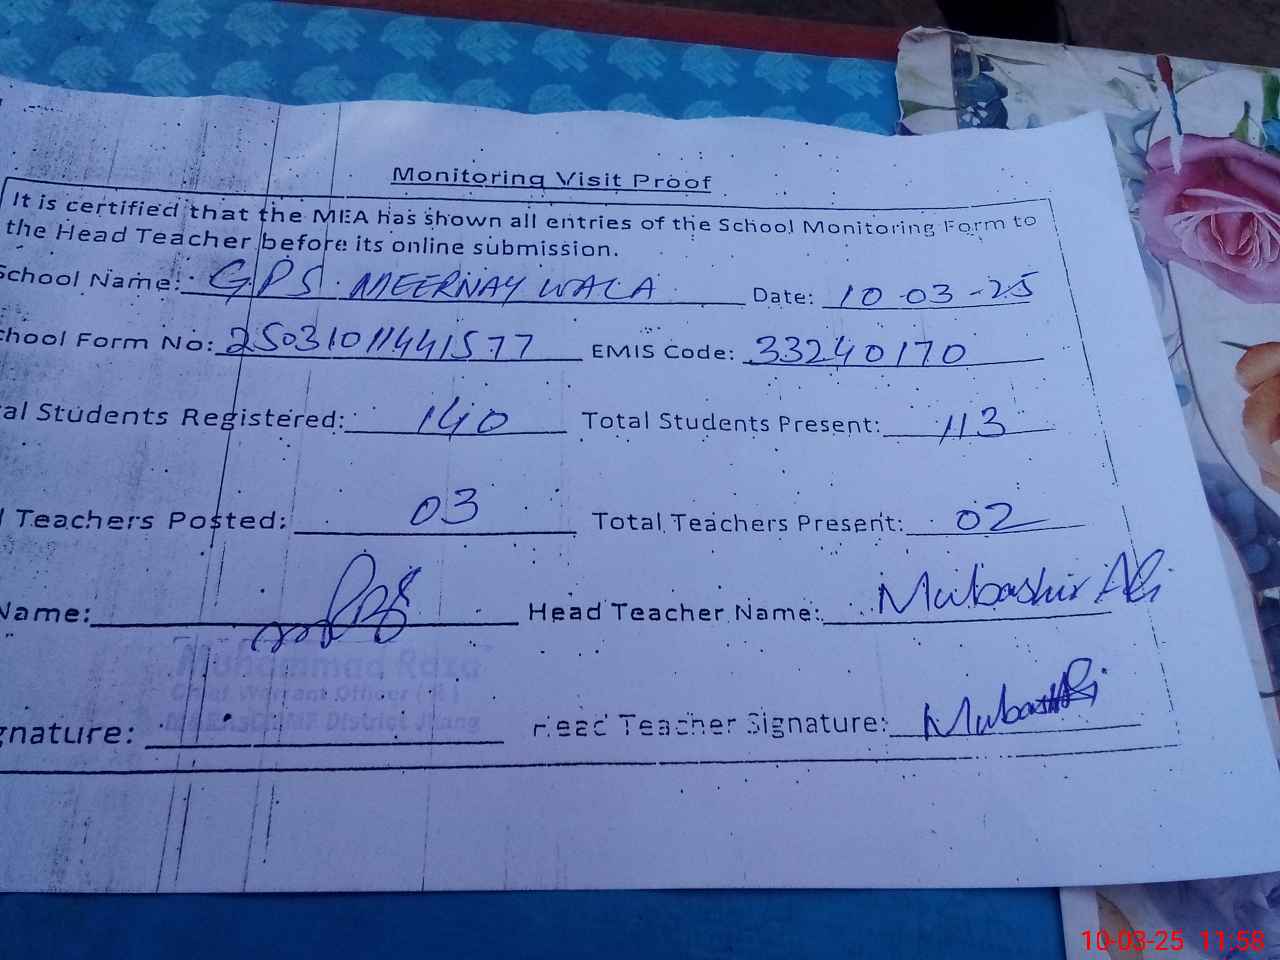 Monitoring Visit Proof
It is certified that the MEA has shown all entries of the School Monitoring Form to
the Head Teacher before its online submission.
School Name: GPS MEERNAY WALA Date: 10-03-25
chool Form No: 25031011441577 EMIS Code: 33240170
al Students Registered: 140 Total Students Present: 113
l Teachers Posted: 03 Total Teachers Present: 02
Name: Head Teacher Name: Mubashir Ali
Muhammad Raza
Chief Warrant Officer (R)
District Jhang
gnature: Head Teacher Signature: Mubashir Ali
10-03-25 11:58